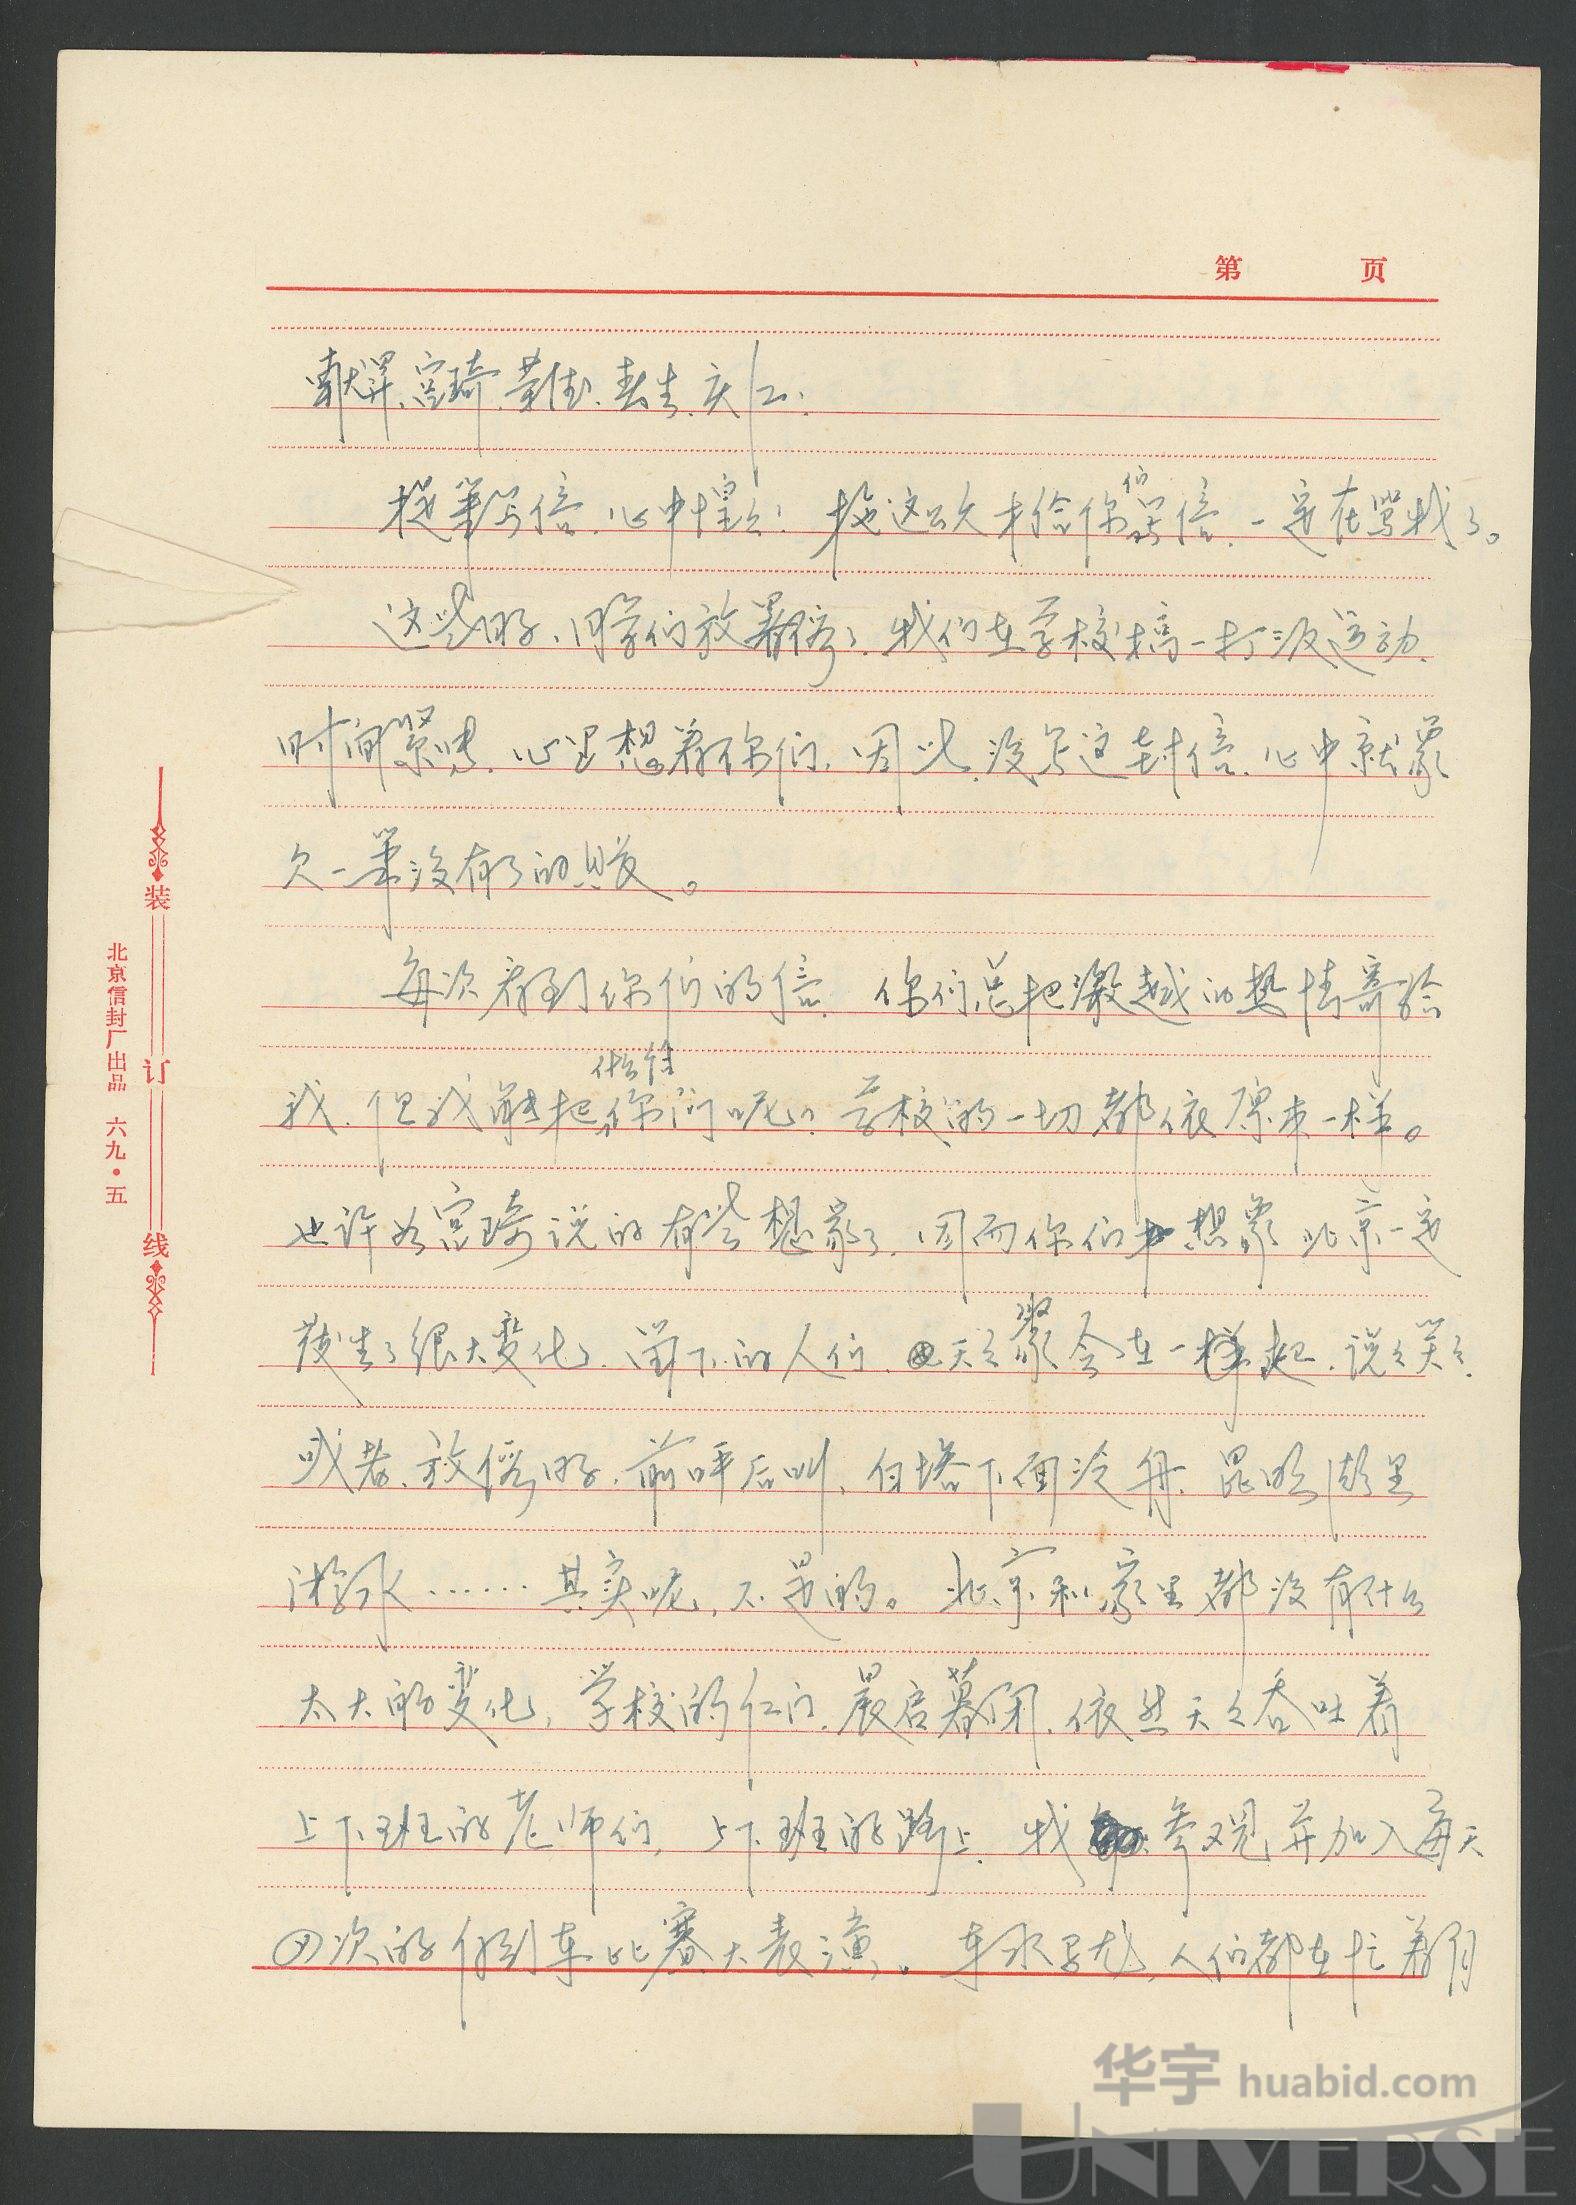 第 页
宫琦、春生、庆仁：
提笔写信，心中惶之：拖这么久才给你们写信，一定在骂我了。
这些日子，同学们放暑假了，我们在学校搞一打三反运动，
时间紧些，心里想着你们，因此，没写这封信，心中就象
欠一笔没有了的账。
每次看到你们的信，你们总把激越的热情寄给
我，但我能把什么给你们呢？学校的一切都依原来一样。
也许如宫琦说的有些想家了，因而你们想象北京一定
发生了很大变化，留下的人们，天之聚会在一起，说之笑之，
或者，放假日子，前呼后叫，白塔下面泛舟，昆明湖里
游水……其实呢，不是的。北京和家里都没有什么
太大的变化，学校的红门，晨启暮闭，依然天之吞吐着
上下班的老师们，上下班的路上，我参观并加入每天
四次的自行车比赛大表演。车水马龙，人们都在忙着
装订线
北京信封厂出品 六九·五
华宇 huabid.com
UNIVERSE